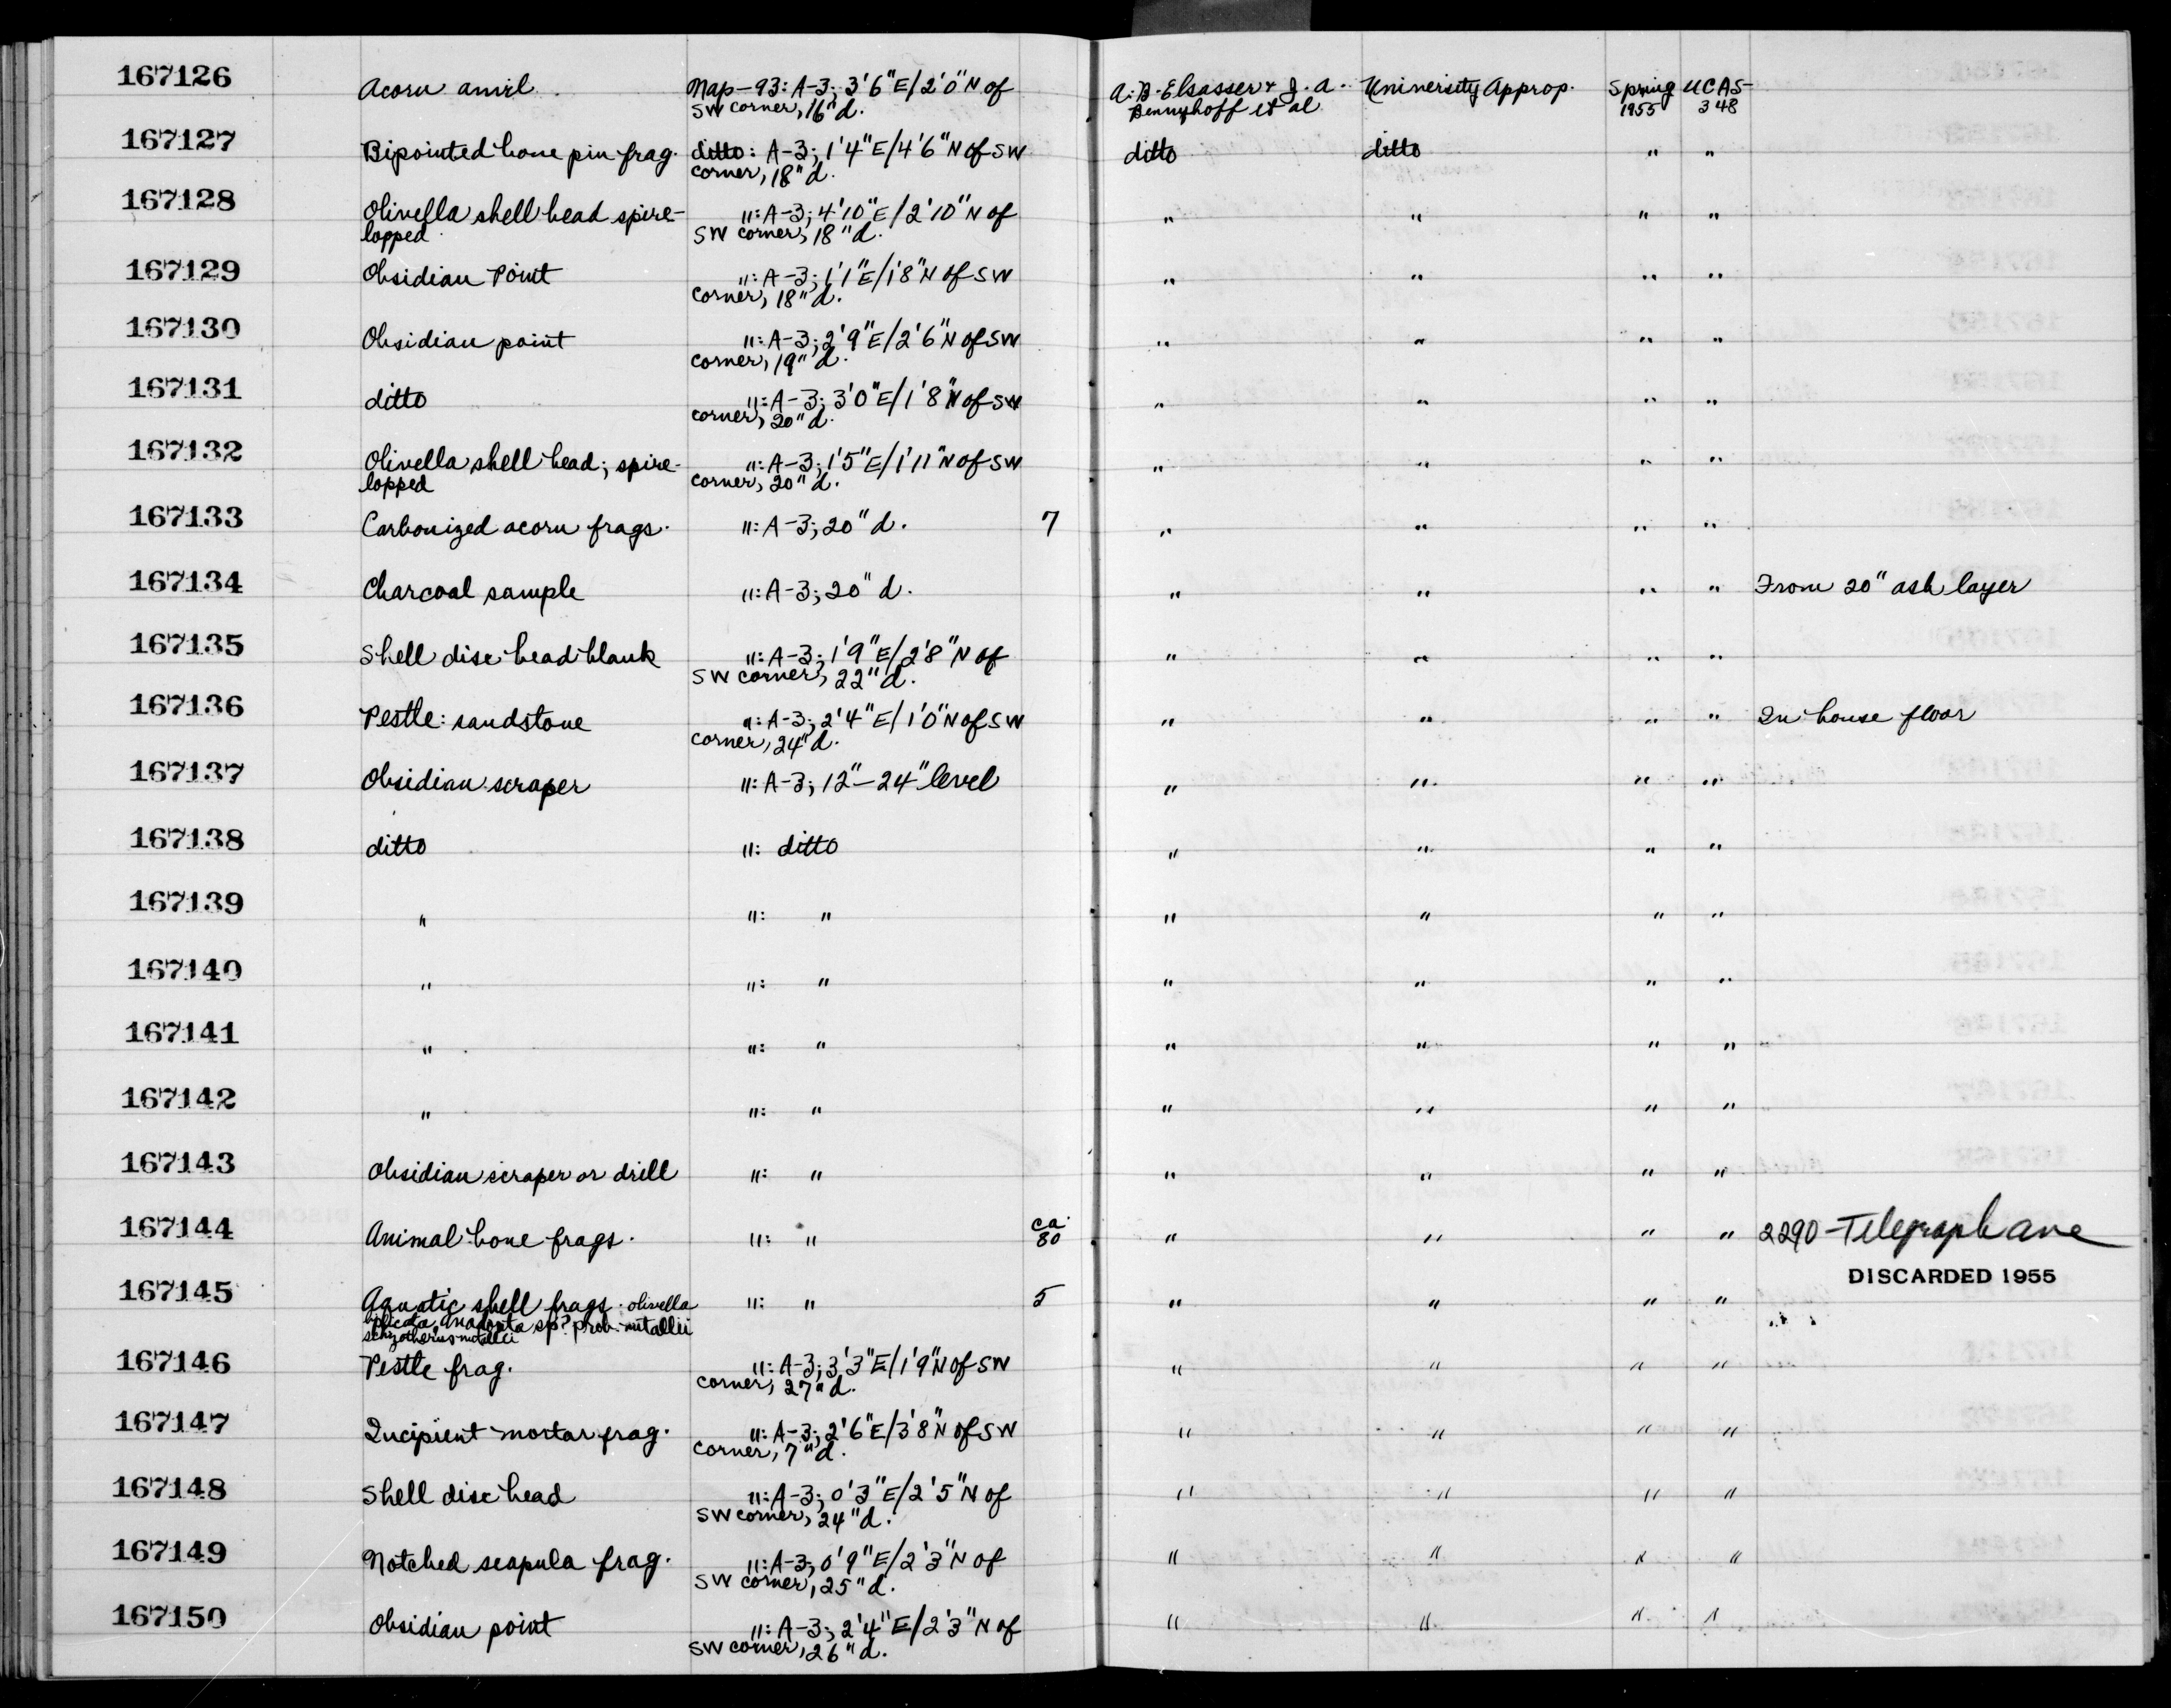 167126 Acorn anvil Map-93: A-3; 3'6"E/2'0"N of A. B. Elsasser & J. A. University Approp. Spring UCAS-
SW corner, 16"d. Bennyhoff et al 1955 348
167127 Bipointed bone pin frag. ditto: A-3; 1'4"E/4'6"N of SW ditto ditto " "
corner, 18"d.
167128 Olivella shell bead spire- ": A-3; 4'10"E/2'10"N of " " " "
lopped SW corner, 18"d.
167129 Obsidian Point ": A-3; 1'1"E/1'8"N of SW " " " "
corner, 18"d.
167130 Obsidian point ": A-3; 2'9"E/2'6"N of SW " " " "
corner, 19"d.
167131 ditto ": A-3; 3'0"E/1'8"N of SW " " " "
corner, 20"d.
167132 Olivella shell bead; spire- ": A-3; 1'5"E/1'11"N of SW " " " "
lopped corner, 20"d.
167133 Carbonized acorn frags. ": A-3; 20"d. 7 " " " "
167134 Charcoal sample ": A-3; 20"d. " " " " From 20" ash layer
167135 Shell disc bead blank ": A-3; 1'9"E/2'8"N of " " " "
SW corner, 22"d.
167136 Pestle: sandstone ": A-3; 2'4"E/1'0"N of SW " " " " In house floor
corner, 24"d.
167137 Obsidian scraper ": A-3; 12"-24" level " " " "
167138 ditto ": ditto " " " "
167139 " ": " " " " "
167140 " ": " " " " "
167141 " ": " " " " "
167142 " ": " " " " "
167143 Obsidian scraper or drill ": " " " " "
167144 Animal bone frags. ": " ca. 80 " " " " 2290 - Telegraph Ave
DISCARDED 1955
167145 Aquatic shell frags. olivella ": " 5 " " " "
biplicata, Anadonta sp? prob. nutallii
nutallii
167146 Pestle frag. ": A-3; 3'3"E/1'9"N of SW " " " "
corner, 27"d.
167147 Incipient mortar frag. ": A-3; 2'6"E/3'8"N of SW " " " "
corner, 7"d.
167148 Shell disc bead ": A-3; 0'3"E/2'5"N of " " " "
SW corner, 24"d.
167149 Notched scapula frag. ": A-3; 0'9"E/2'3"N of " " " "
SW corner, 25"d.
167150 Obsidian point ": A-3; 2'4"E/2'3"N of " " " "
SW corner, 26"d.